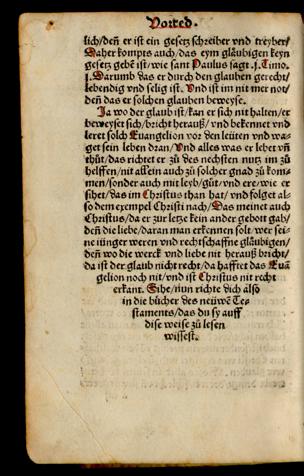 Vorred.
lich/deñ er ist ein gesetz schreiber vnd treyber/
Daher kompts auch/das eym gläubigen keyn
gesetz gebẽ ist/wie sant Paulus sagt .j. Timo.
j. Darumb das er durch den glauben gerecht/
lebendig vnd selig ist. Vnd ist im nit mer not/
deñ das er solchen glauben beweyse.
Ja wo der glaub ist/kan er sich nit halten/er
beweyset sich/bricht herauß/ vnd bekennet vnd
leret solch Euangelion vor den leüten vnd wa-
get sein leben dran/Vnd alles was er lebet vñ
thůt/das richtet er zů des nechsten nutz im zů
helffen/nit allein auch zů solcher gnad zů kom-
men/sonder auch mit leyb/gůt/vnd ere/wie er
sihet/das im Christus than hat/ vnd folget al-
so dem exempel Christi nach/Das meinet auch
Christus/da er zur letze kein ander gebott gab/
deñ die liebe/daran man erkennen solt wer sei-
ne iünger weren vnd rechtschaffne gläubigen/
deñ wo die werck vnd liebe nit herauß bricht/
da ist der glaub nicht recht/da hafftet das Euã
gelion noch nit/vnd ist Christus nit recht
erkant. Sihe/nun richte dich also
in die bücher des neüwẽ Te-
staments/das du sy auff
dise weise zů lesen
wissest.